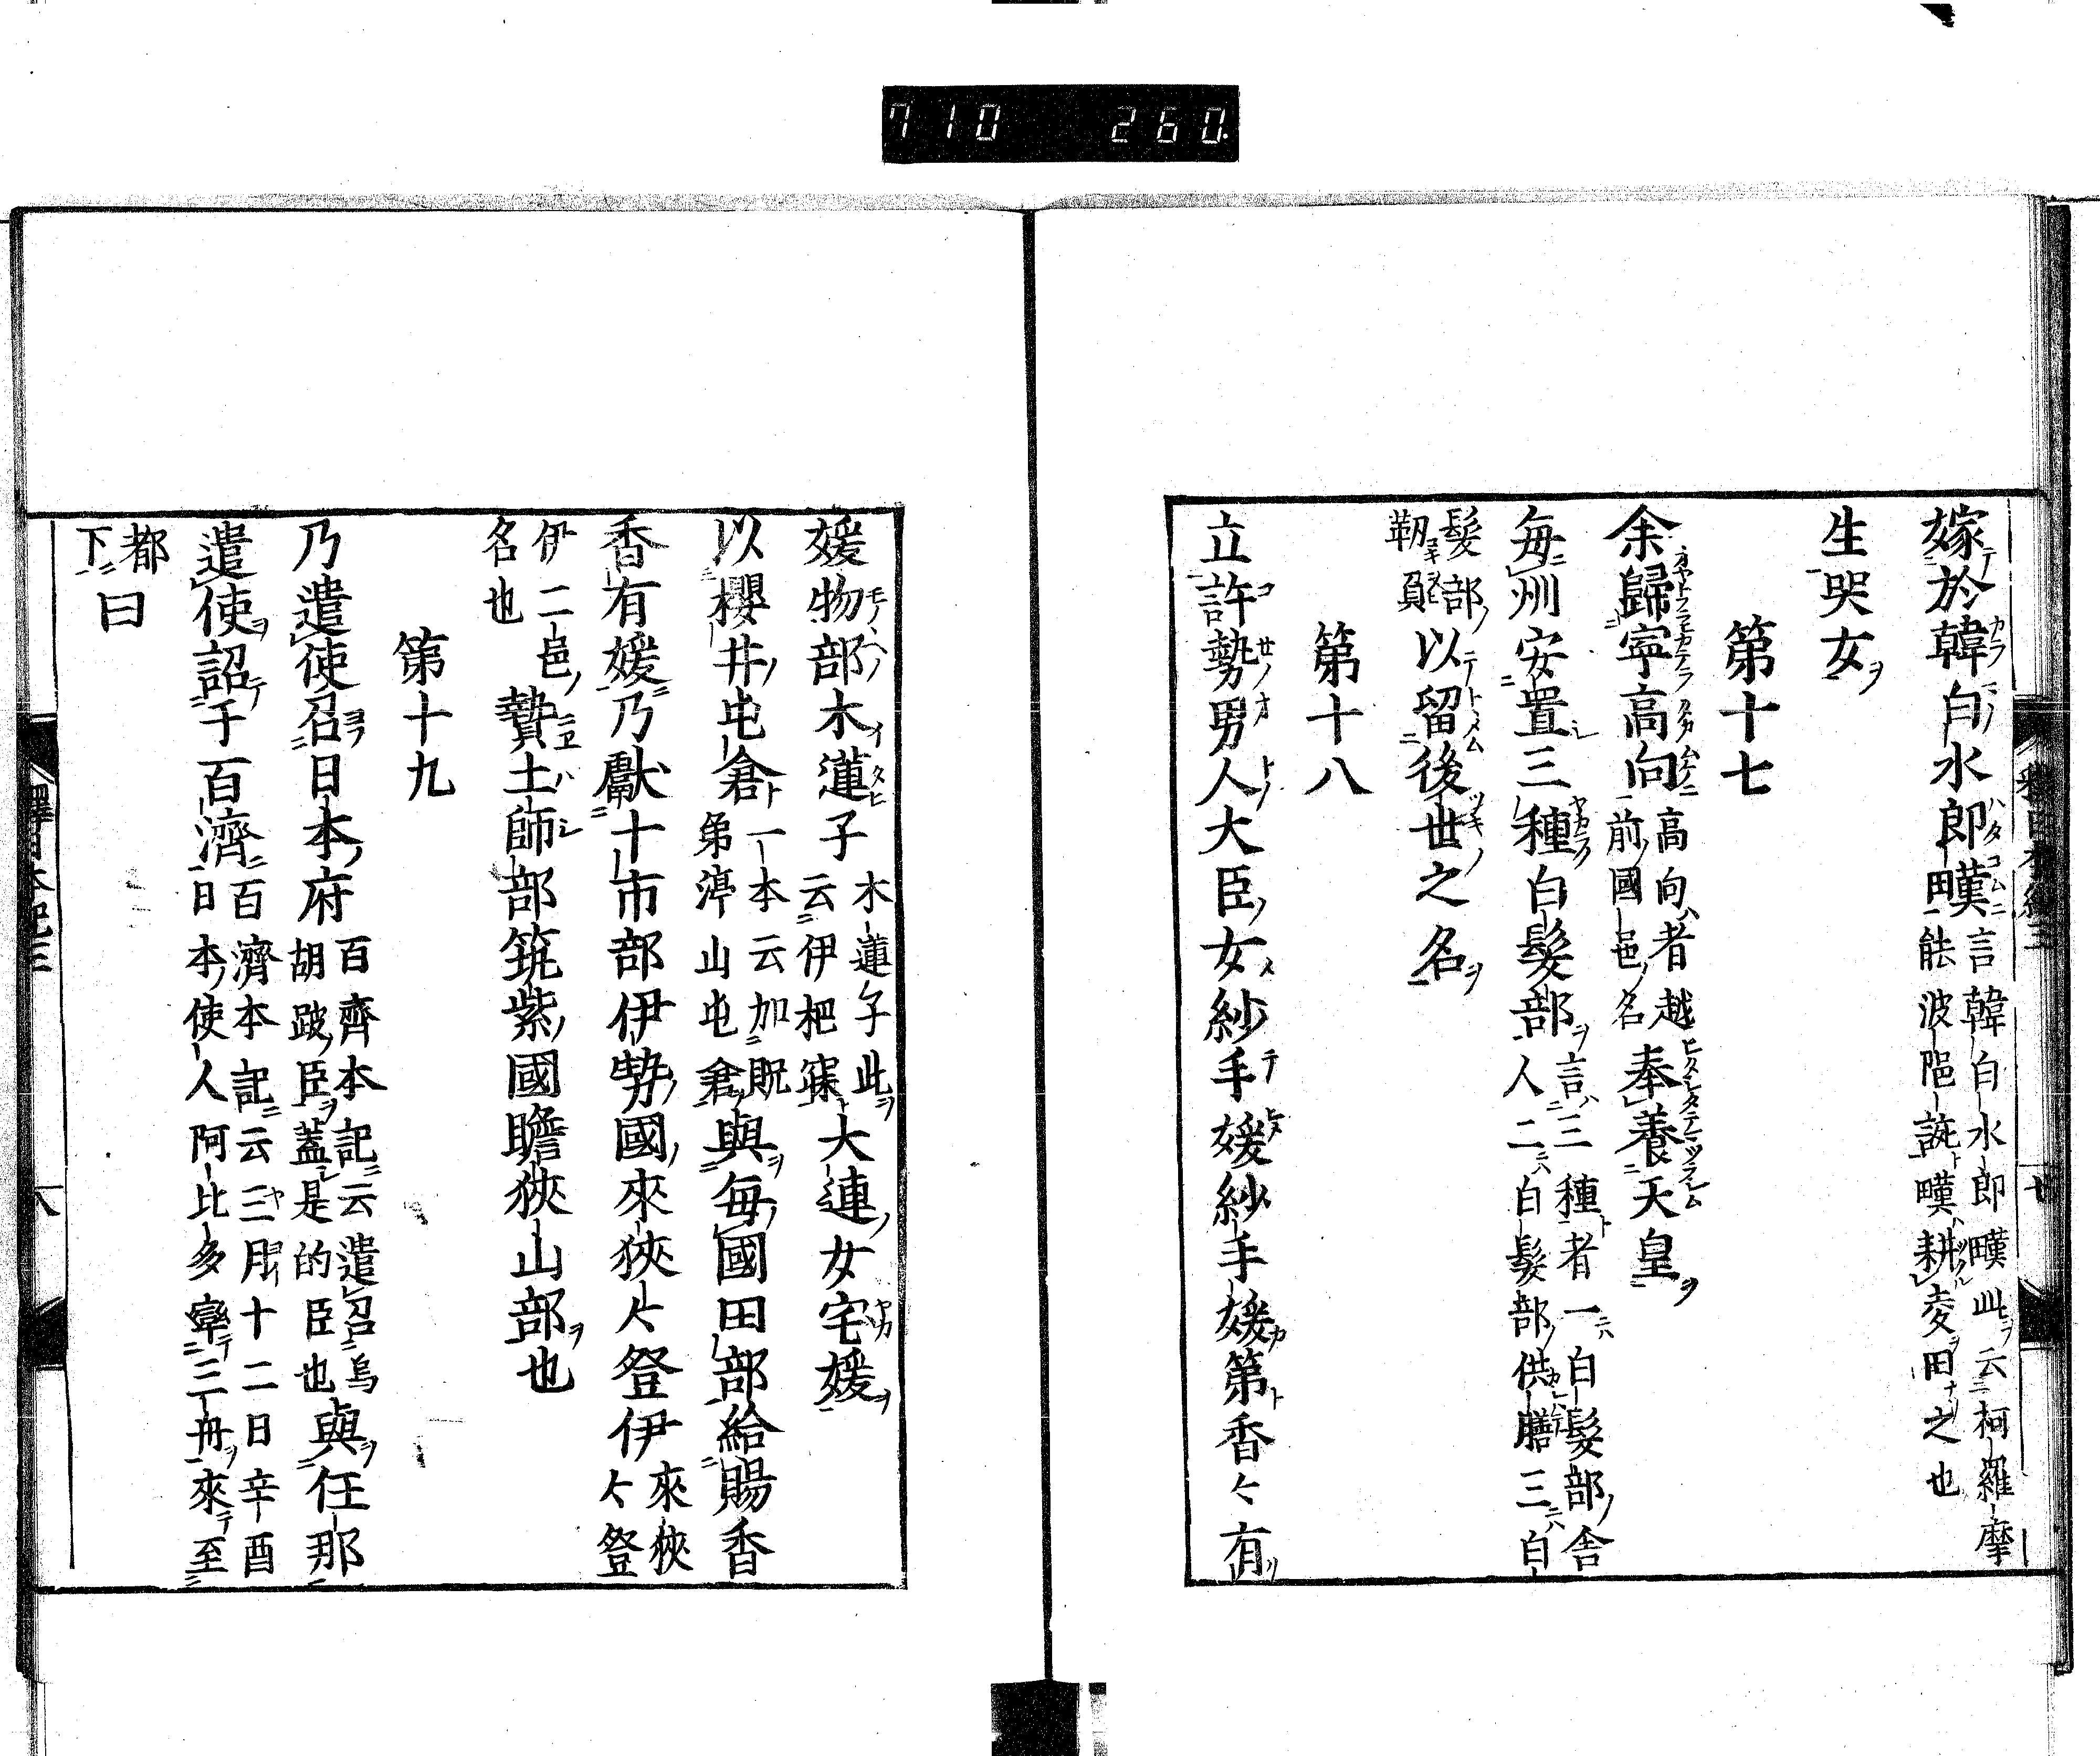 710 260.
嫁於韓白水郎暵言韓白水郎暵此云柯羅摩
田能波陁該暵耕麦田之也
生哭女
第十七
余歸寧高向高向者越
前國邑名奉養天皇
毎州安置三種白髮部言三種者一白髮部舎
人二白髮部供膳三白
髮部
靱負以留後世之名
第十八
立許勢男人大臣女紗手媛紗手媛第香〻有
媛物部木蓮子木蓮子此
云伊杷寐大連女宅媛
以櫻井屯倉一本云加貺
弟渟山屯倉與毎國田部給賜香
香有媛乃獻十市部伊勢國來狹〻登伊來狹
〻登
伊二邑
名也贄土師部筑紫國瞻狹山部也
第十九
乃遣使召日本府百齊本記云遣召烏
胡跛臣蓋是的臣也與任那
遣使詔于百濟百濟本記云三月十二日辛酉
日本使人阿比多率三舟來至
都
下曰
釋日本紀三
八